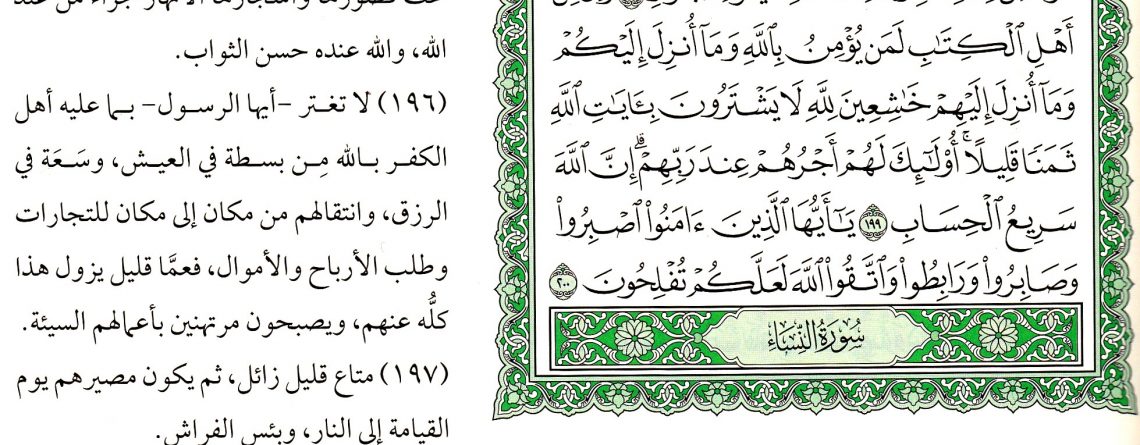 أَهْلِ ٱلْكِتَٰبِ لَمَن يُؤْمِنُ بِٱللَّهِ وَمَآ أُنزِلَ إِلَيْكُمْ
وَمَآ أُنزِلَ إِلَيْهِمْ خَٰشِعِينَ لِلَّهِ لَا يَشْتَرُونَ بِـَٔايَٰتِ ٱللَّهِ
ثَمَنًا قَلِيلًا ۗ أُو۟لَٰٓئِكَ لَهُمْ أَجْرُهُمْ عِندَ رَبِّهِمْ ۗ إِنَّ ٱللَّهَ
سَرِيعُ ٱلْحِسَابِ ١٩٩ يَٰٓأَيُّهَا ٱلَّذِينَ ءَامَنُوا۟ ٱصْبِرُوا۟
وَصَابِرُوا۟ وَرَابِطُوا۟ وَٱتَّقُوا۟ ٱللَّهَ لَعَلَّكُمْ تُفْلِحُونَ ٢٠٠
سُورَةُ النِّسَاءِ
تحت قصورها وأشجارها الأنهار جزاء من عند
الله، والله عنده حسن الثواب.
(١٩٦) لا تغتر -أيها الرسول- بما عليه أهل
الكفر بالله مِن بسطة في العيش، وسَعَة في
الرزق، وانتقالهم من مكان إلى مكان للتجارات
وطلب الأرباح والأموال، فعمَّا قليل يزول هذا
كلُّه عنهم، ويصبحون مرتهنين بأعمالهم السيئة.
(١٩٧) متاع قليل زائل، ثم يكون مصيرهم يوم
القيامة إلى النار، وبئس الفراش.